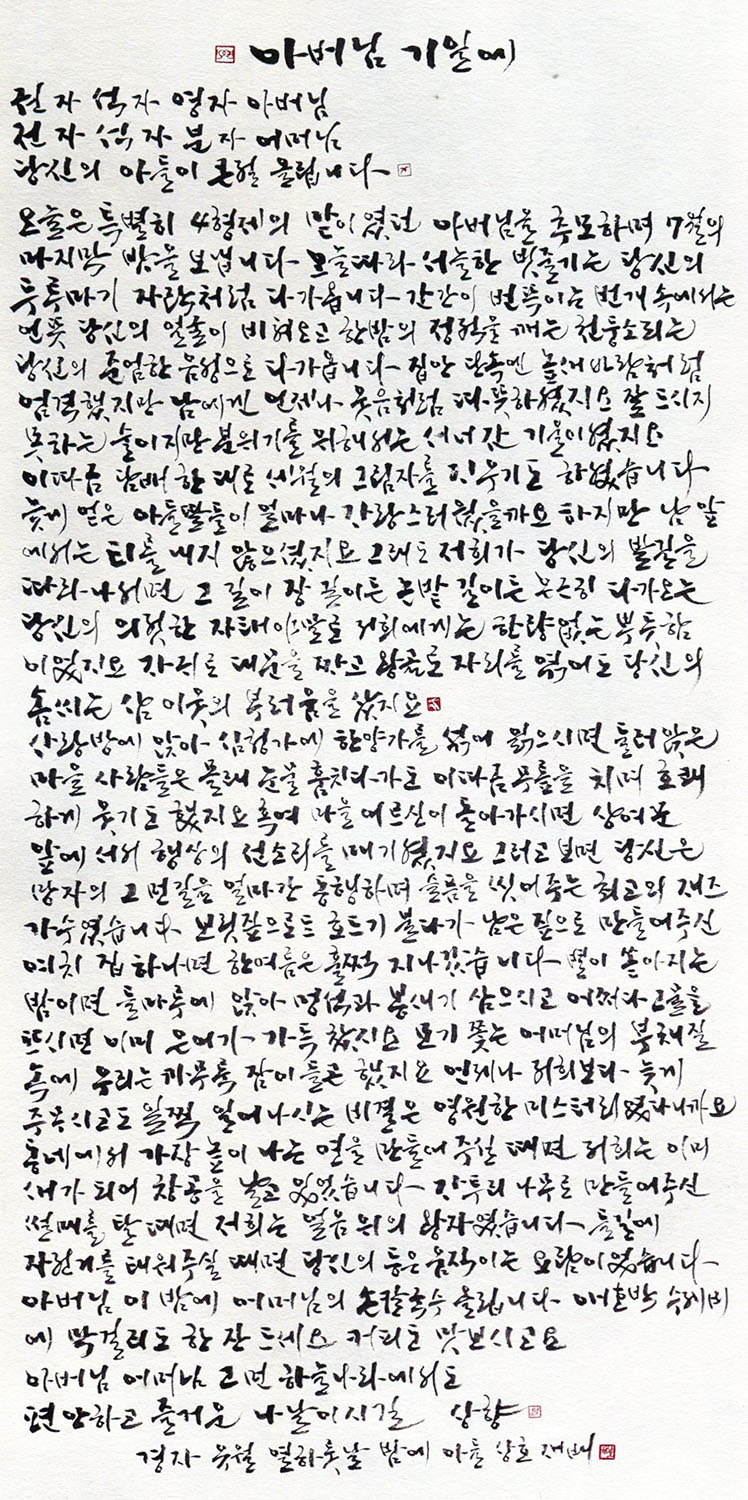 아버님 기일에
전 자 석 자 영자 아버님
전 자 석 자 분 자 어머님
당신의 아들이 큰절 올립니다
오늘은 특별히 4형제의 맏이였던 아버님을 추모하며 7월의
마지막 밤을 보냅니다 오늘따라 서늘한 빗줄기는 당신의
두루마기 자락처럼 다가옵니다 간간이 번뜩이는 번개 속에서는
언뜻 당신의 얼굴이 비쳐오고 한밤의 정적을 깨는 천둥소리는
당신의 준엄한 음성으로 다가옵니다 집안 단속엔 높새바람처럼
엄격했지만 남에겐 언제나 웃음처럼 따뜻하였지요 잘 드시지
못하는 술이지만 분위기를 위해서는 서너 잔 기울이셨지요
이따금 담배 한 대로 세월의 그림자를 지우기도 하셨습니다
늦게 얻은 아들딸들이 얼마나 자랑스러웠을까요 하지만 남 앞
에서는 티를 내지 않으셨지요 그래도 저희가 당신의 발길을
따라 나서면 그 길이 장 길이든 논밭 길이든 은근히 다가오는
당신의 의젓한 자태야말로 저희에게는 한량없는 뿌듯함
이었지요 자귀로 대문을 짜고 왕골로 자리를 엮어도 당신의
솜씨는 삼 이웃의 부러움을 샀지요
사랑방에 앉아 심청가에 한양가를 섞어 읽으시면 둘러앉은
마을 사람들은 몰래 눈물 훔치다가도 이따금 무릎을 치며 호쾌
하게 웃기도 했지요 혹여 마을 어르신이 돌아가시면 상여꾼
앞에 서서 행상의 선소리를 매기셨지요 그러고 보면 당신은
망자의 그 먼길을 얼마간 동행하며 슬픔을 씻어주는 최고의 재즈
가수였습니다 보릿짚으로 호드기 불다가 남은 짚으로 만들어주신
여치 집 하나면 한여름은 훌쩍 지나갔습니다 별이 쏟아지는
밤이면 들마루에 앉아 멍석과 봉새기 삼으시고 어쩌다 고를을
뜨시면 이미 은어가 가득 찼지요 모기 쫓는 어머님의 부채질
속에 우리는 까무룩 잠이 들곤 했지요 언제나 저희보다 늦게
주무시고도 일찍 일어나시는 비결은 영원한 미스터리였다니까요
동네에서 가장 높이 나는 연을 만들어 주실 때면 저희는 이미
새가 되어 창공을 날고 있었습니다 자투리 나무로 만들어주신
썰매를 탈 때면 저희는 얼음 위의 왕자였습니다 들길에
자전거를 태워주실 때면 당신의 등은 움직이는 요람이었습니다
아버님 이 밤에 어머님의 손칼국수 올립니다 애호박 수제비
에 막걸리도 한 잔 드세요 커피도 맛보시고요
아버님 어머님 그 먼 하늘나라에서도
편안하고 즐거운 나날이시길 상향
경자 유월 열하룻날 밤에 아들 상호 재배